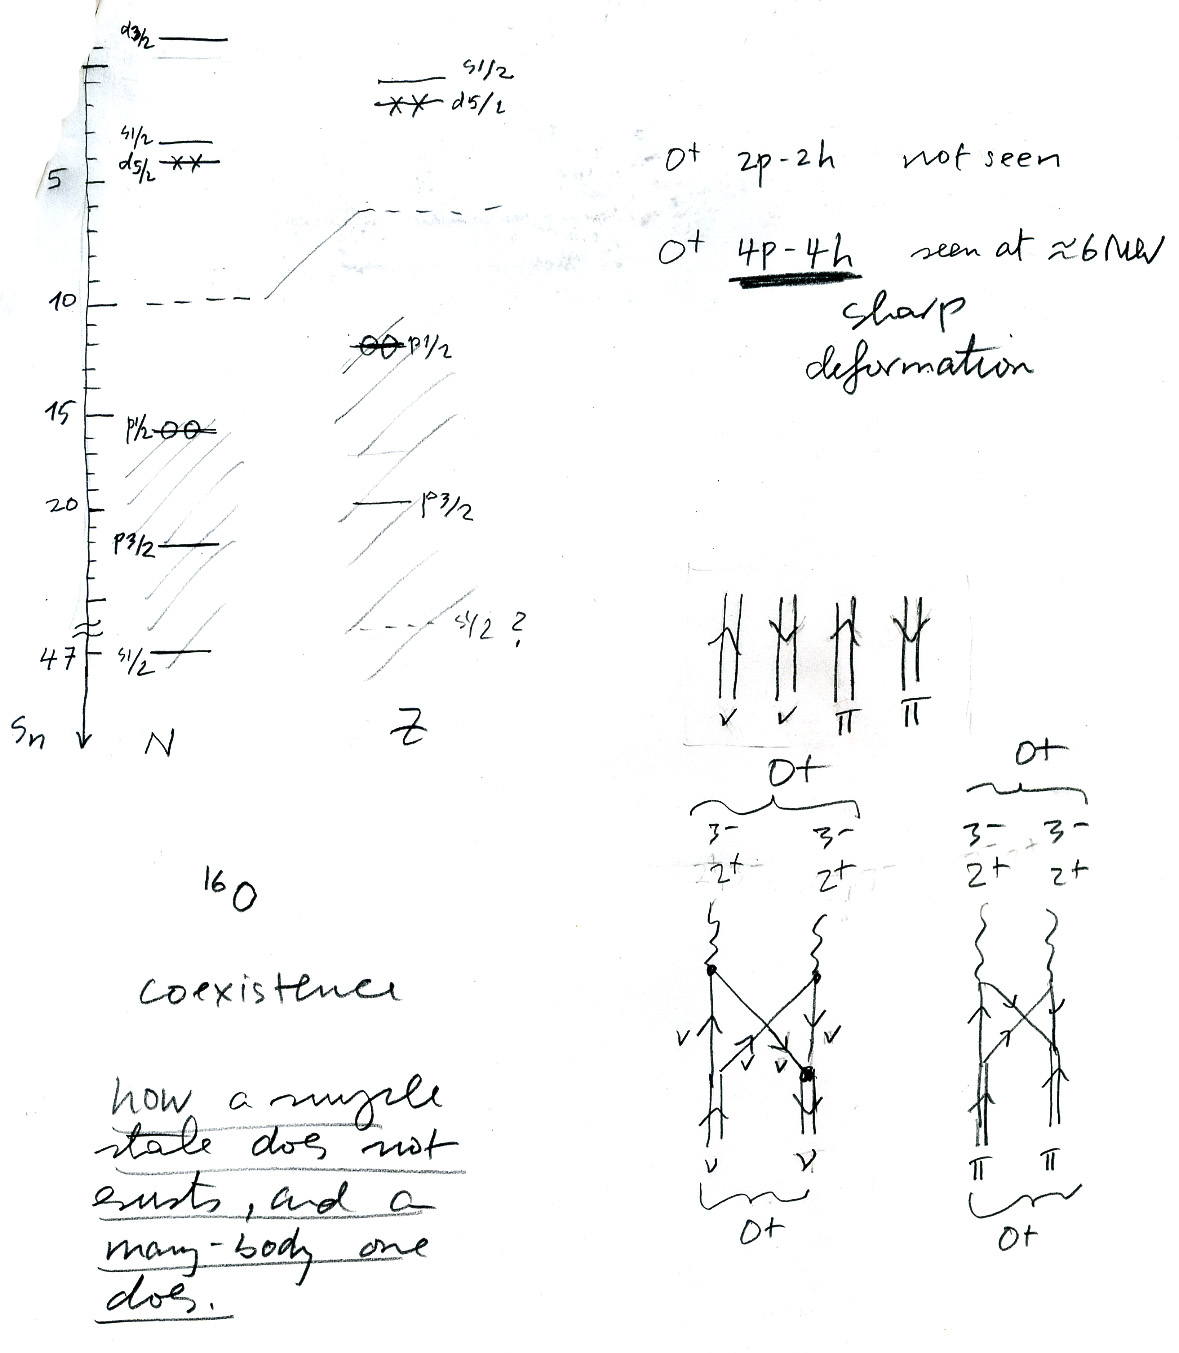 d3/2
s1/2
d5/2
5
10
15
p1/2
20
p3/2
47
s1/2
Sn
N
s1/2
d5/2
p1/2
p3/2
s1/2 ?
Z
0+ 2p-2h not seen
0+ 4p-4h seen at ≈6 MeV
sharp
deformation
ν ν π π
0+
3- 3-
2+ 2+
ν ν ν ν
ν ν
0+
0+
3- 3-
2+ 2+
π π
0+
16O
coexistence
how a single
state does not
exists, and a
many-body one
does.